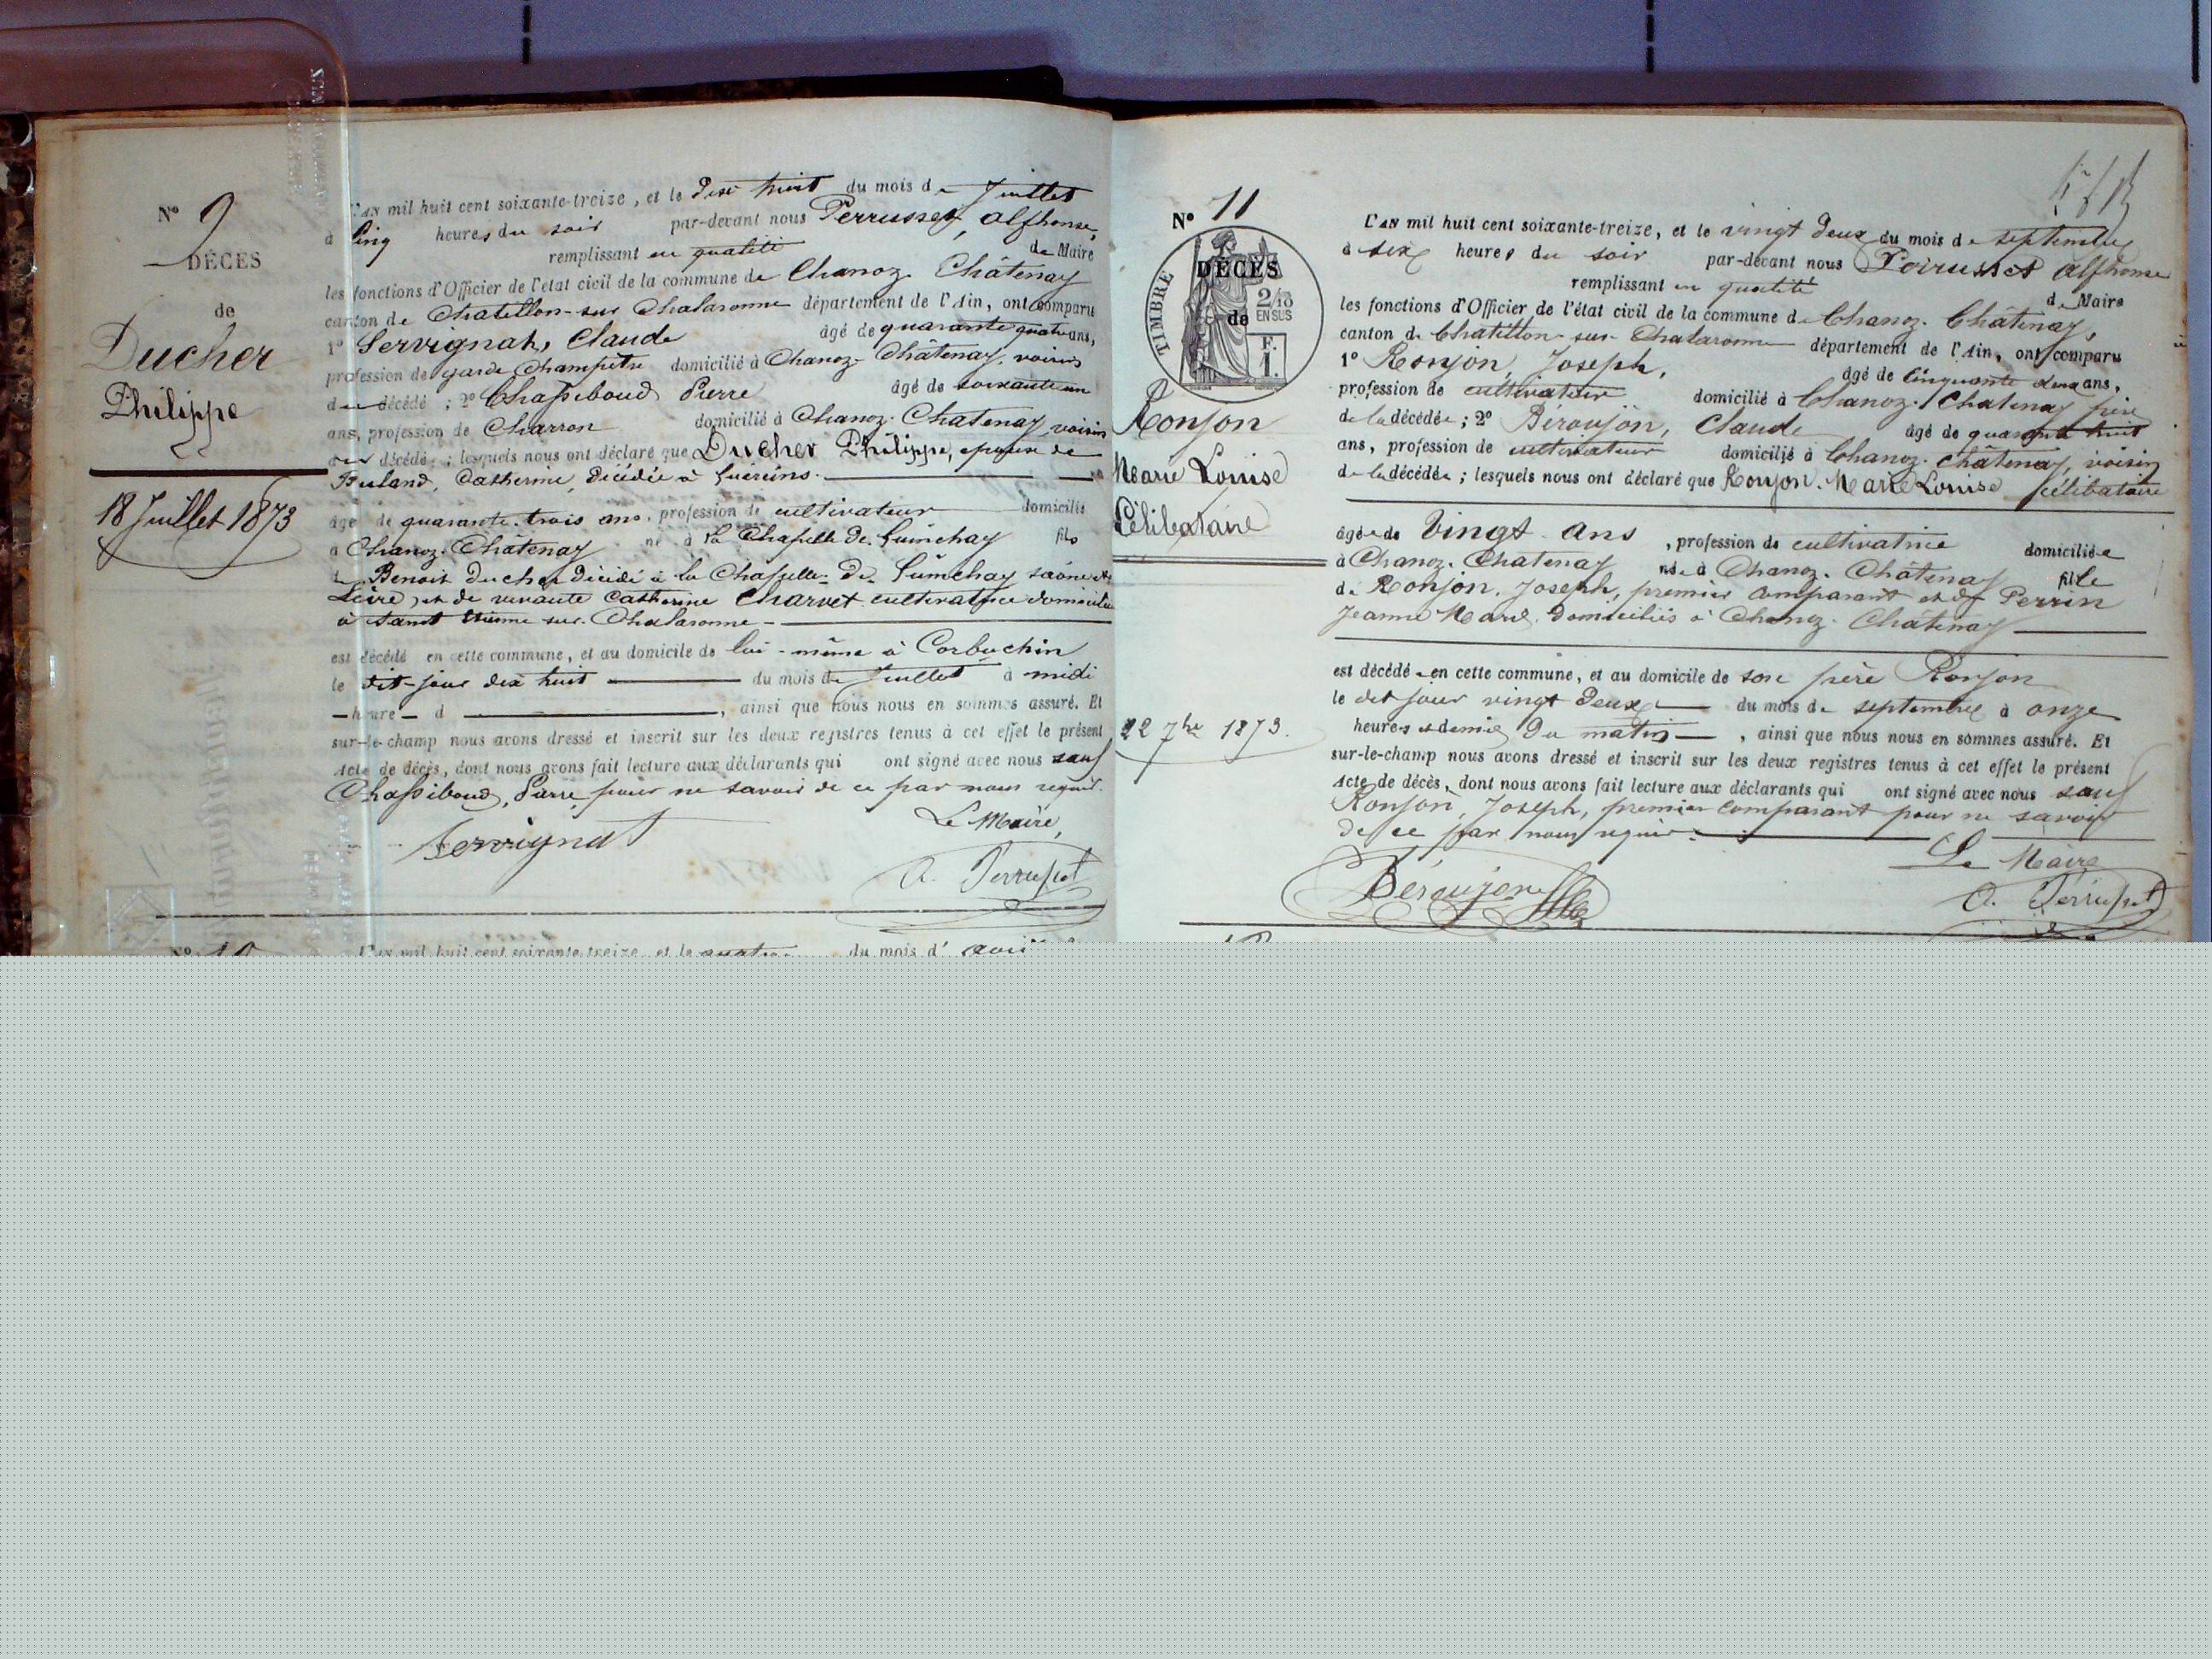 N° 9
DÉCÈS
de
Ducher
Philippe
18 Juillet 1873
L'AN mil huit cent soixante-treize, et le dix huit du mois de Juillet
à Cinq heures du soir par-devant nous Perrusset, Alphonse,
remplissant en qualité de Maire
les fonctions d'Officier de l'état civil de la commune de Chanoz-Châtenay
canton de Chatillon-sur Chalaronne département de l'Ain, ont comparu
1° Servignat, Claude âgé de quarante quatre ans,
profession de garde champêtre domicilié à Chanoz-Châtenay, voisin
du décédé ; 2° Chassiboud Pierre âgé de soixante un
ans, profession de Charron domicilié à Chanoz-Chatenay, voisin
du décédé ; lesquels nous ont déclaré que Ducher Philippe, époux de
Catherine, décédée à
âgé de quarante-trois ans, profession de cultivateur domicilié
à Chanoz-Châtenay né à la Chapelle de Guinchay fils
de Benoit Ducher décédé à la Chapelle-De-Guinchay Saône et
Loire, et de vivante Catherine Charvet cultivatrice domiciliée
à Saint Etienne sur-Chalaronne -
est décédé en cette commune, et au domicile de lui-même à Corbuchin
le dit-jour dix huit du mois de Juillet à midi
heure d , ainsi que nous nous en sommes assuré. Et
sur-le-champ nous avons dressé et inscrit sur les deux registres tenus à cet effet le présent
Acte de décès, dont nous avons fait lecture aux déclarants qui ont signé avec nous sauf
Chassiboud, Pierre pour ne savoir de ce par nous requis.
Le Maire,
Servignat
A. Perrusset
N° 10
L'AN mil huit cent soixante-treize, et le quatre du mois d'
N° 11
TIMBRE
DÉCÈS
de
2/10
EN SUS
F.
1.
Ronjon
Marie Louise
Célibataire
22 7bre 1873.
L'AN mil huit cent soixante-treize, et le vingt deux du mois de septembre
à six heures du soir par-devant nous Perrusset Alphonse
remplissant en qualité de Maire
les fonctions d'Officier de l'état civil de la commune de Chanoz-Châtenay,
canton de Chatillon-sur-Chalaronne département de l'Ain, ont comparu
1° Ronjon, Joseph, âgé de cinquante deux ans,
profession de cultivateur domicilié à Chanoz-Chatenay père
de la décédée ; 2° Béroujon, Claude âgé de quarante huit
ans, profession de cultivateur domicilié à Chanoz-Châtenay, voisin
de la décédée ; lesquels nous ont déclaré que Ronjon-Marie Louise célibataire
âgée de Vingt-ans, profession de cultivatrice domiciliée
à Chanoz-Chatenay née à Chanoz-Châtenay fille
de Ronjon, Joseph, premier comparant et de Perrin
Jeanne Marie, domiciliés à Chanoz-Châtenay
est décédée en cette commune, et au domicile de son père Ronjon
le dit jour vingt deux du mois de septembre à onze
heures et demie du matin , ainsi que nous nous en sommes assuré. Et
sur-le-champ nous avons dressé et inscrit sur les deux registres tenus à cet effet le présent
Acte de décès, dont nous avons fait lecture aux déclarants qui ont signé avec nous sauf
Ronjon, Joseph, premier comparant pour ne savoir
de ce par nous requis.
Le Maire
Béroujon
A. Perrusset